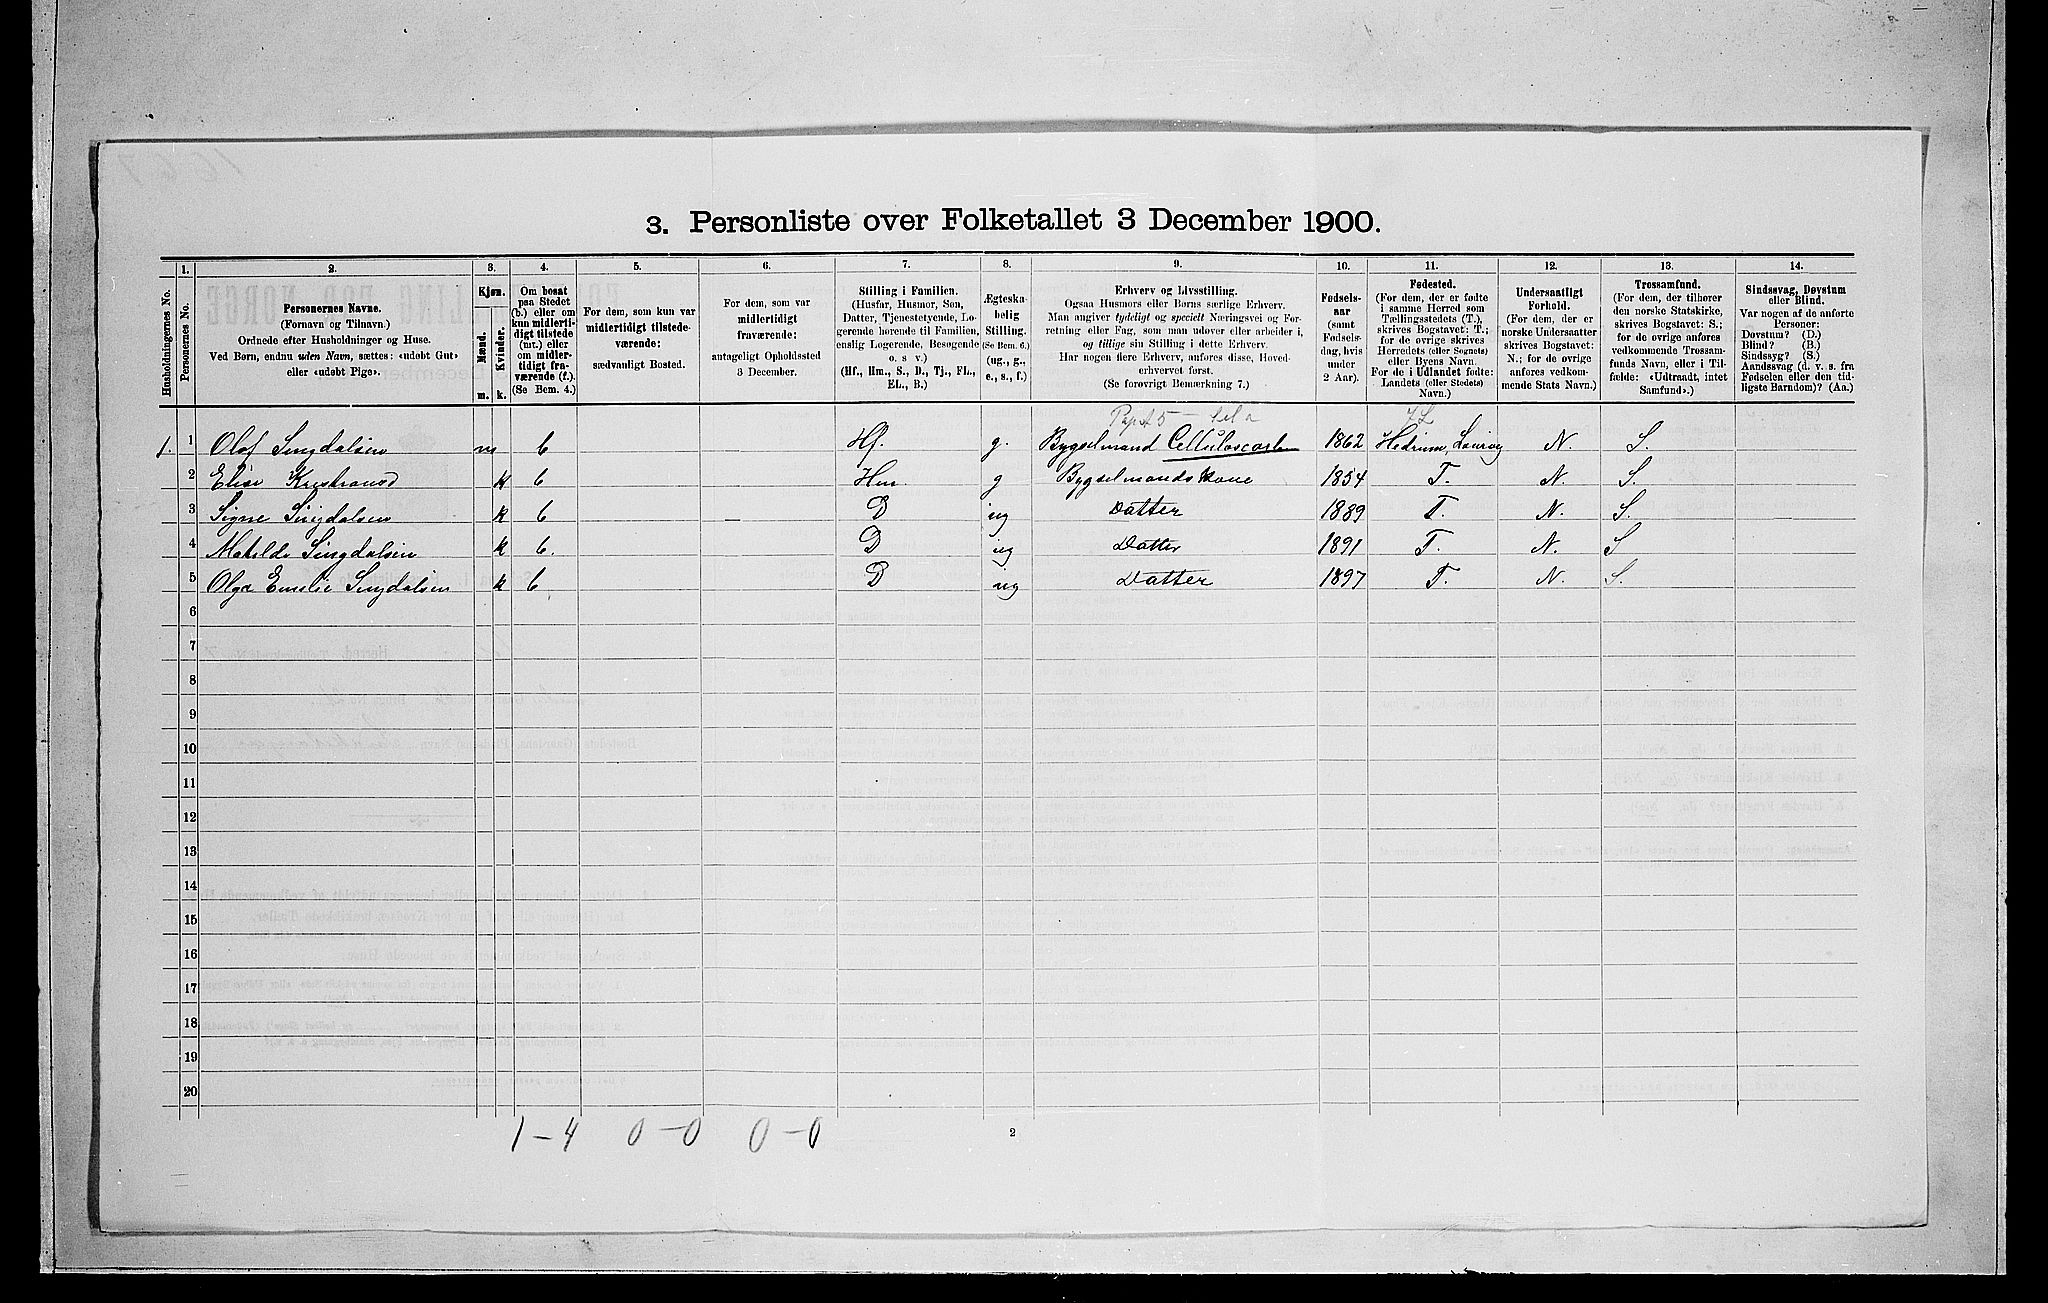 3. Personliste over Folketallet 3 December 1900.
Husholdningernes No.
1.
Personernes No.
2.
Personernes Navne.
(Fornavn og Tilnavn.)
Ordnede efter Husholdninger og Huse.
Ved Børn, endnu uden Navn, sættes: «udøbt Gut»
eller «udøbt Pige».
3.
Kjøn.
Mænd.
Kvinder.
m. k.
4.
Om bosat
paa Stedet
(b.) eller om
kun midlerti-
digt tilstede
(mt.) eller
om midler-
tidigt fra-
værende (f.).
(Se Bem. 4.)
5.
For dem, som kun var
midlertidigt tilstede-
værende:
sædvanligt Bosted.
6.
For dem, som var
midlertidigt
fraværende:
antageligt Opholdssted
3 December.
7.
Stilling i Familien.
(Husfar, Husmor, Søn,
Datter, Tjenestetyende, Lo-
gerende hørende til Familien,
enslig Logerende, Besøgende
o. s v.)
(Hf., Hm., S., D., Tj., FL.,
EL., B.)
8.
Ægteska-
belig
Stilling.
(Se Bem. 6.)
(ug., g.,
e., s., f.)
9.
Erhverv og Livsstilling.
Ogsaa Husmors eller Børns særlige Erhverv.
Man angiver tydeligt og specielt Næringsvei og For-
retning eller Fag, som man udøver eller arbeider i,
og tillige sin Stilling i dette Erhverv.
Har nogen flere Erhverv, anføres disse, Hoved-
erhvervet først.
(Se forøvrigt Bemærkning 7.)
10.
Fødsels-
aar
(samt
Fødsels-
dag, hvis
under
2 Aar).
11.
Fødested.
(For dem, der er fødte
i samme Herred som
Tællingsstedets (T.),
skrives Bogstavet: T.;
for de øvrige skrives
Herredets (eller Sognets)
eller Byens Navn.
For de i Udlandet fødte:
Landets (eller Stedets)
Navn.)
12.
Undersaatligt
Forhold.
(For dem, der er
norske Undersaatter
skrives Bogstavet:
N.; for de øvrige
anføres vedkom-
mende Stats Navn.)
13.
Trossamfund.
(For dem, der tilhører
den norske Statskirke,
skrives Bogstavet: S.;
for de øvrige anføres
vedkommende Trossam-
funds Navn, eller i Til-
fælde: «Udtraadt, intet
Samfund».)
14.
Sindssvag, Døvstum
eller Blind.
Var nogen af de anførte
Personer:
Døvstum? (D.)
Blind? (B.)
Sindssyg? (S.)
Aandssvag (d. v. s. fra
Fødselen eller den tid-
ligste Barndom)? (Aa.)
1. 1 Olaf Singdalsen m b Hf. g. Bygselmand Cellulosearb 1862 Hedrum, Laurvig N. S.
2 Elise Kristransd k b Hm. g Bygselmands Kone 1854 T. N. S.
3 Signe Singdalsen k b D ug Datter 1889 T. N. S.
4 Matilde Singdalsen k b. D ug Datter 1891 T. N. S
5 Olga Emelie Singdalsen k b D ug Datter 1897 T. N. S.
6
7
8
9
10
11
12
13
14
15
16
17
18
19
20
1 – 4 0 – 0 0 – 0
2